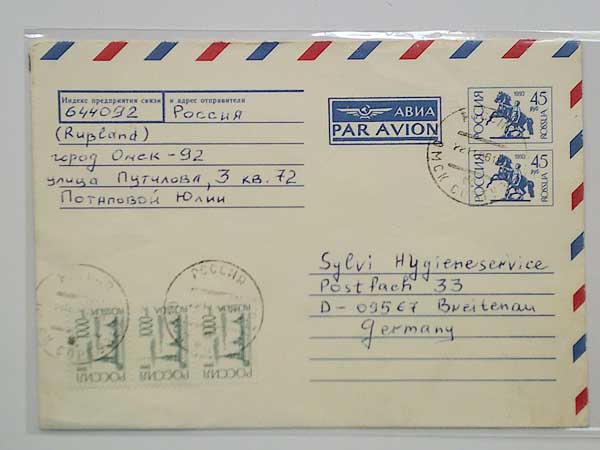 Индекс предприятия связи и адрес отправителя
644092 Россия
(Rußland)
город Омск-92
улица Путилова, 3 кв. 72
Потаповой Юлии
АВИА
PAR AVION
РОССИЯ 1993 45 руб ROSSIJA
РОССИЯ 1993 45 руб ROSSIJA
Sylvi Hygieneservice
Postfach 33
D-09567 Breitenau
Germany
РОССИЯ
ОМСК
РОССИЯ 1000 ROSSIJA
РОССИЯ 1000 ROSSIJA
РОССИЯ 1000 ROSSIJA